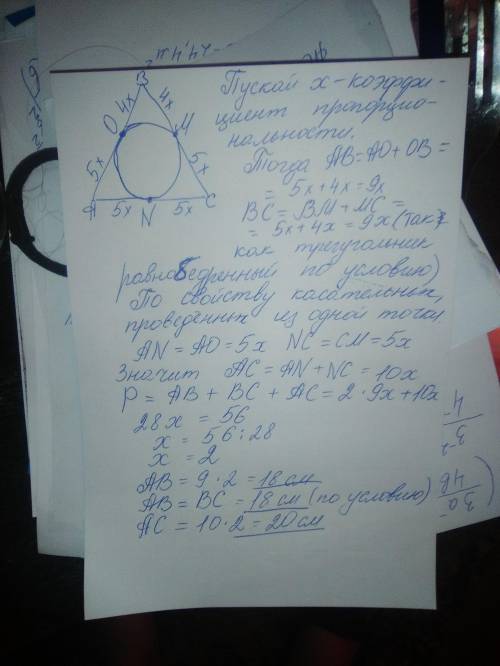 B
4x 4x
O M
5x 5x
A 5x N 5x C
Пускай x-коэффи-
циент пропорцио-
нальности.
Тогда AB=AO+OB=
= 5x+4x=9x
BC=BM+MC=
= 5x+4x=9x (так
как треугольник
равнобедренный по условию)
По свойству касательных,
проведенных из одной точки
AN=AO=5x NC=CM=5x
Значит AC=AN+NC=10x
P=AB+BC+AC=2·9x+10x
28x=56
x=56:28
x=2
AB=9·2=18 см
AB=BC=18 см (по условию)
AC=10·2=20 см